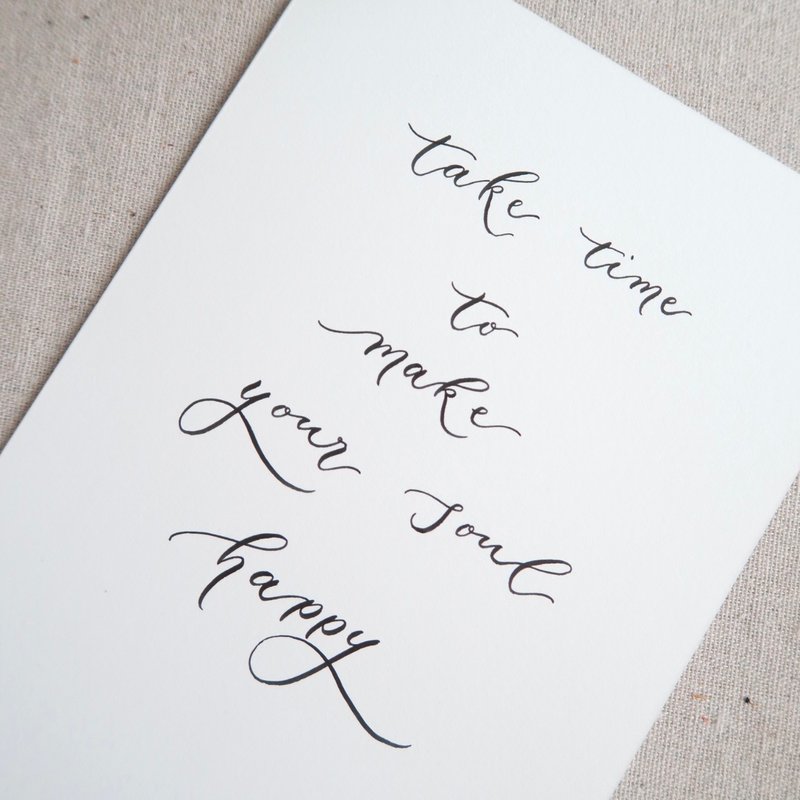 take time
to
make
your soul
happy